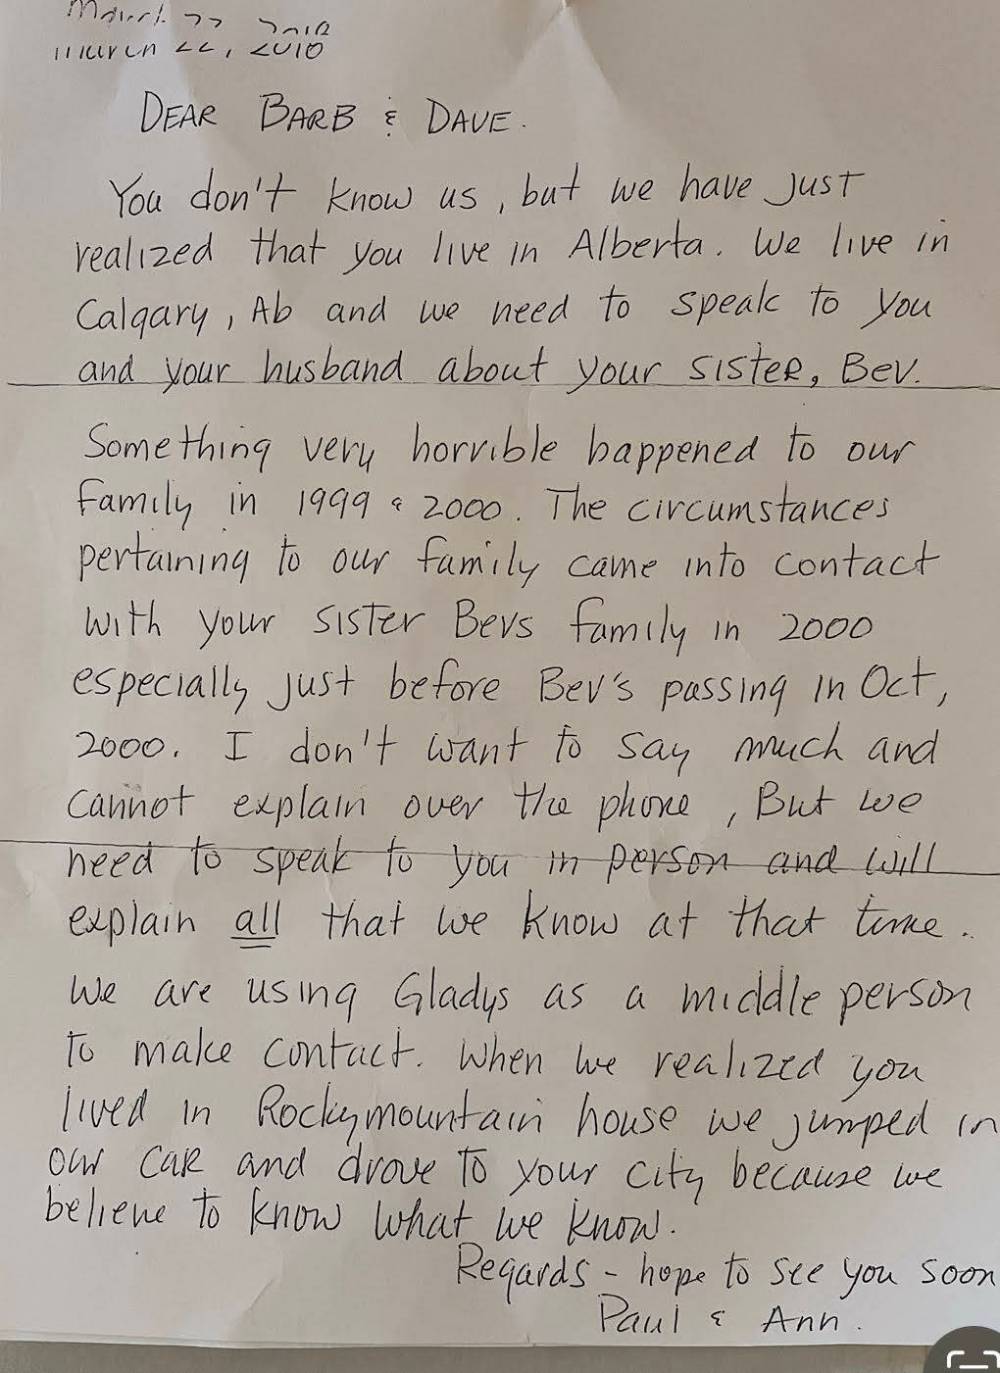 March 22 2010
March 22, 2010
DEAR BARB & DAVE.
You don't know us, but we have just
realized that you live in Alberta. We live in
Calgary, Ab and we need to speak to you
and your husband about your SISTER, Bev.
Something very horrible happened to our
family in 1999 & 2000. The circumstances
pertaining to our family came into contact
with your sister Bevs family in 2000
especially just before Bev's passing in Oct,
2000. I don't want to say much and
cannot explain over the phone, But we
need to speak to you in person and will
explain all that we know at that time.
We are using Gladys as a middle person
to make contact. When we realized you
lived in Rockymountain house we jumped in
our car and drove to your city because we
believe to know what we know.
Regards - hope to see you soon
Paul & Ann.